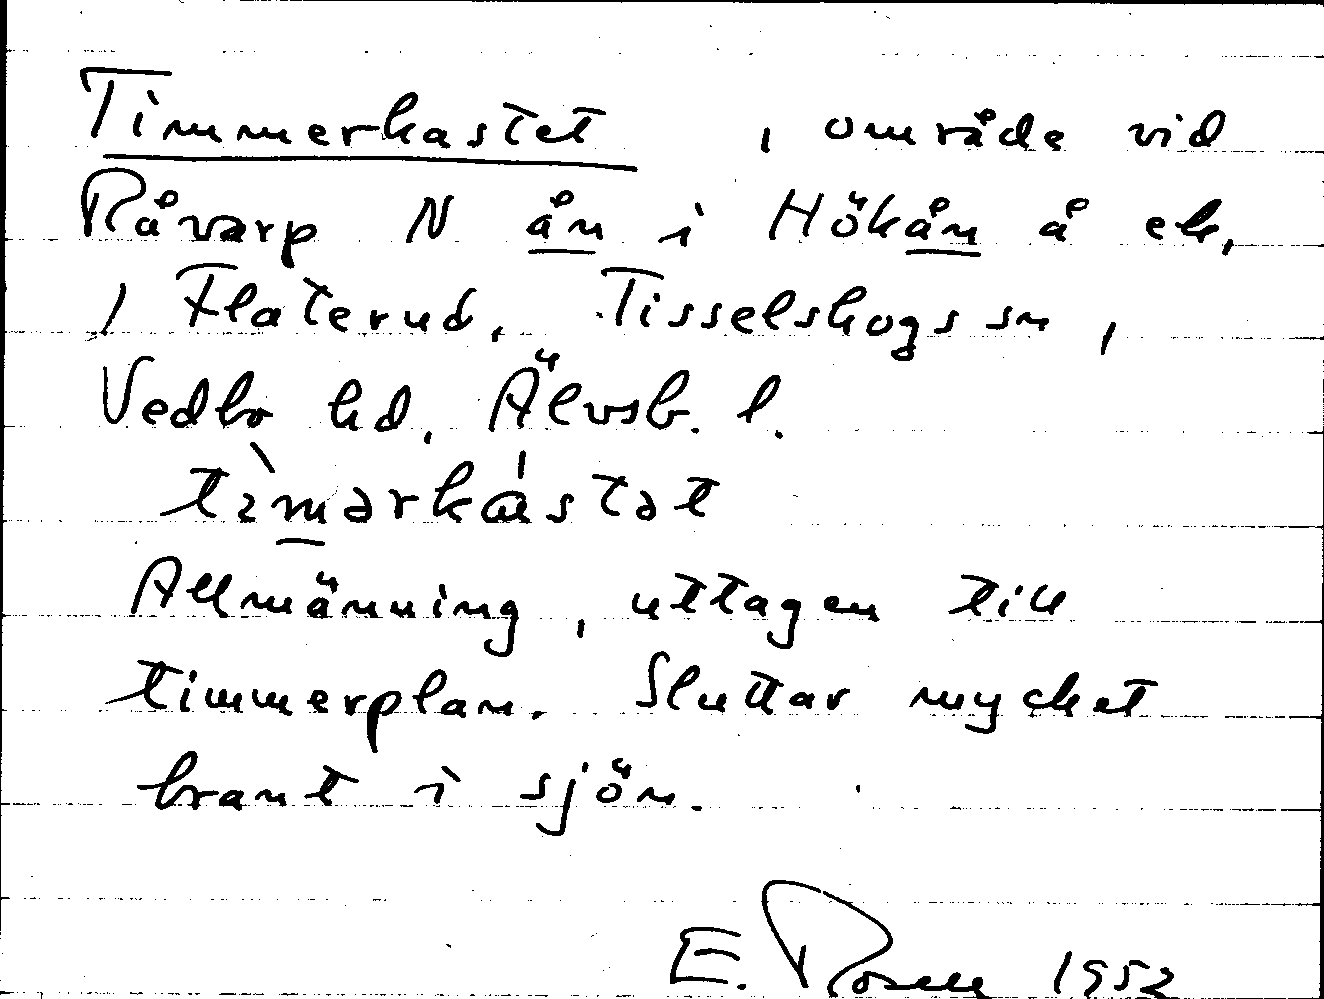 Timmerkastet, område vid
Råvarp N ån i Hökån å ek,
, Flaterud. Tisselskogs sn,
Vedbo hd, Älvsb. l.
tìmərkástət
Allmänning, uttagen till
timmerplan. Sluttar mycket
brant i sjön.
E. 1952